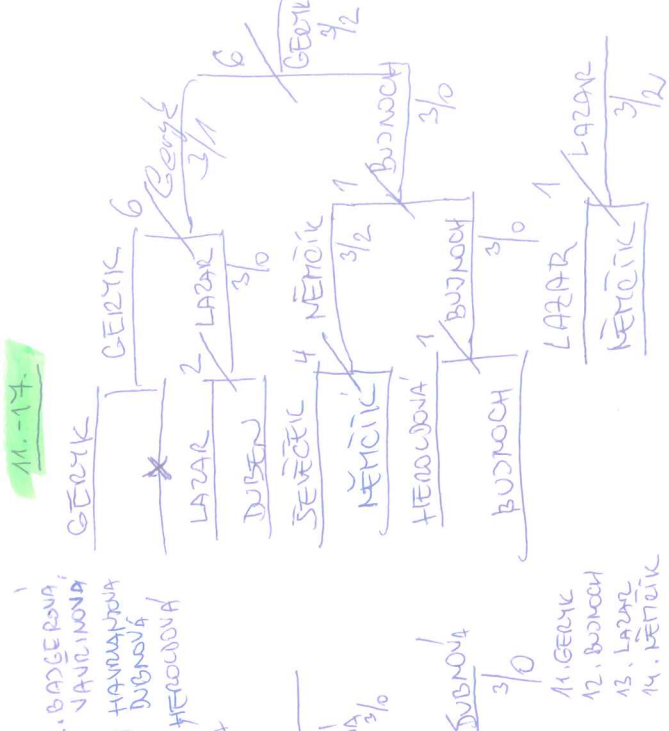 11.-17.
GERYK
X
LAZAR
DUBEN
ŠEVEČEK
NĚMČÍK
HEROLDOVÁ
BUJNOCH
GERYK
2 LAZAR
3/0
4 NĚMČÍK
3/2
1 BUJNOCH
3/0
6 Geryk
3/1
1 BUJNOCH
3/0
6 GERYK
3/2
LAZAR
NĚMČÍK
1 LAZAR
3/2
BADGEROVÁ,
VAVRINOVÁ,
DUBNOVÁ
HEROLDOVÁ
3/0
DUBNOVÁ
3/0
11. GERYK
12. BUJNOCH
13. LAZAR
14. NĚMČÍK